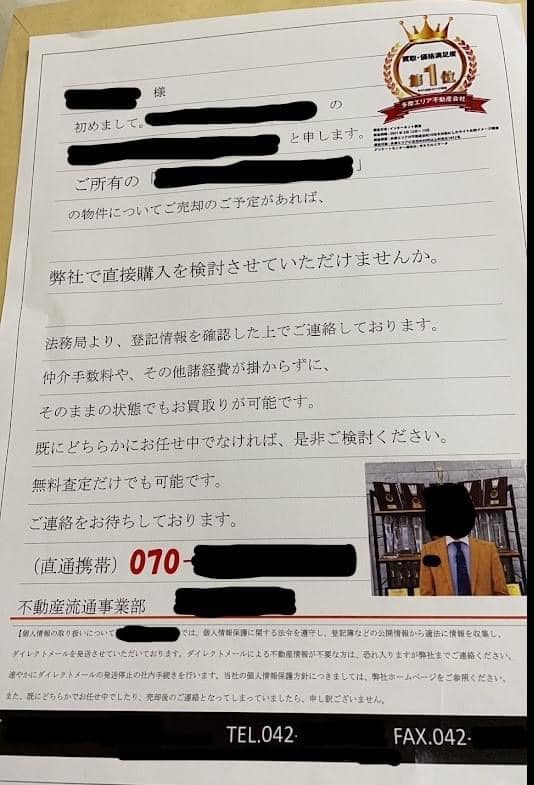 買取・価格満足度
第1位
多摩エリア不動産会社
様
初めまして。の
と申します。
ご所有の「」
の物件についてご売却のご予定があれば、
弊社で直接購入を検討させていただけませんか。
法務局より、登記情報を確認した上でご連絡しております。
仲介手数料や、その他諸経費が掛からずに、
そのままの状態でもお買取りが可能です。
既にどちらかにお任せ中でなければ、是非ご検討ください。
無料査定だけでも可能です。
ご連絡をお待ちしております。
（直通携帯）070-
不動産流通事業部
【個人情報の取り扱いについて では、個人情報保護に関する法令を遵守し、登記簿などの公開情報から適法に情報を収集し、
ダイレクトメールを発送させていただいております。ダイレクトメールによる不動産情報が不要な方は、恐れ入りますが弊社までご連絡ください。
速やかにダイレクトメールの発送停止の社内手続きを行います。当社の個人情報保護方針につきましては、弊社ホームページをご参照ください。
また、既にどちらかでお任せ中でしたり、売却後のご連絡となってしまっていましたら、申し訳ございません。
TEL.042- FAX.042-